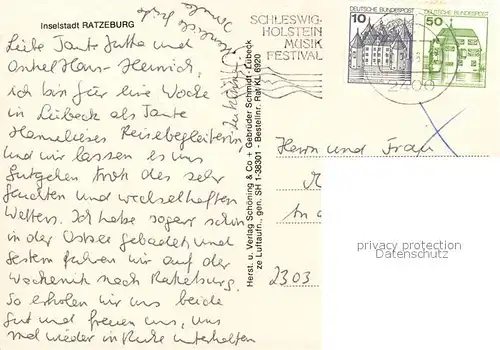 Inselstadt RATZEBURG
Liebe Tante Jutta und
Onkel Hans-Heinrich,
ich bin für eine Woche
in Lübeck als Tante
Hannelieses Reisebegleiterin
und wir lassen es uns
gutgehen trotz des sehr
feuchten und wechselhaften
Wetters. Ich habe sogar schon
in der Ostsee gebadet und
gestern fuhren wir auf der
Wackenitz nach Ratzeburg.
So erholen wir uns beide
gut und freuen uns, uns
mal wieder in Ruhe unterhalten
zu können.
Herzliche Grüße
Herst. u. Verlag Schöning & Co + Gebrüder Schmidt · Lübeck
ze Luftaufn., gen. SH 1-38301 - Bestellnr. Rat KL 6920
SCHLESWIG-
HOLSTEIN
MUSIK
FESTIVAL
DEUTSCHE BUNDESPOST
10
DEUTSCHE BUNDESPOST
50
2400
Herrn und Frau
An
2303
privacy protection
Datenschutz